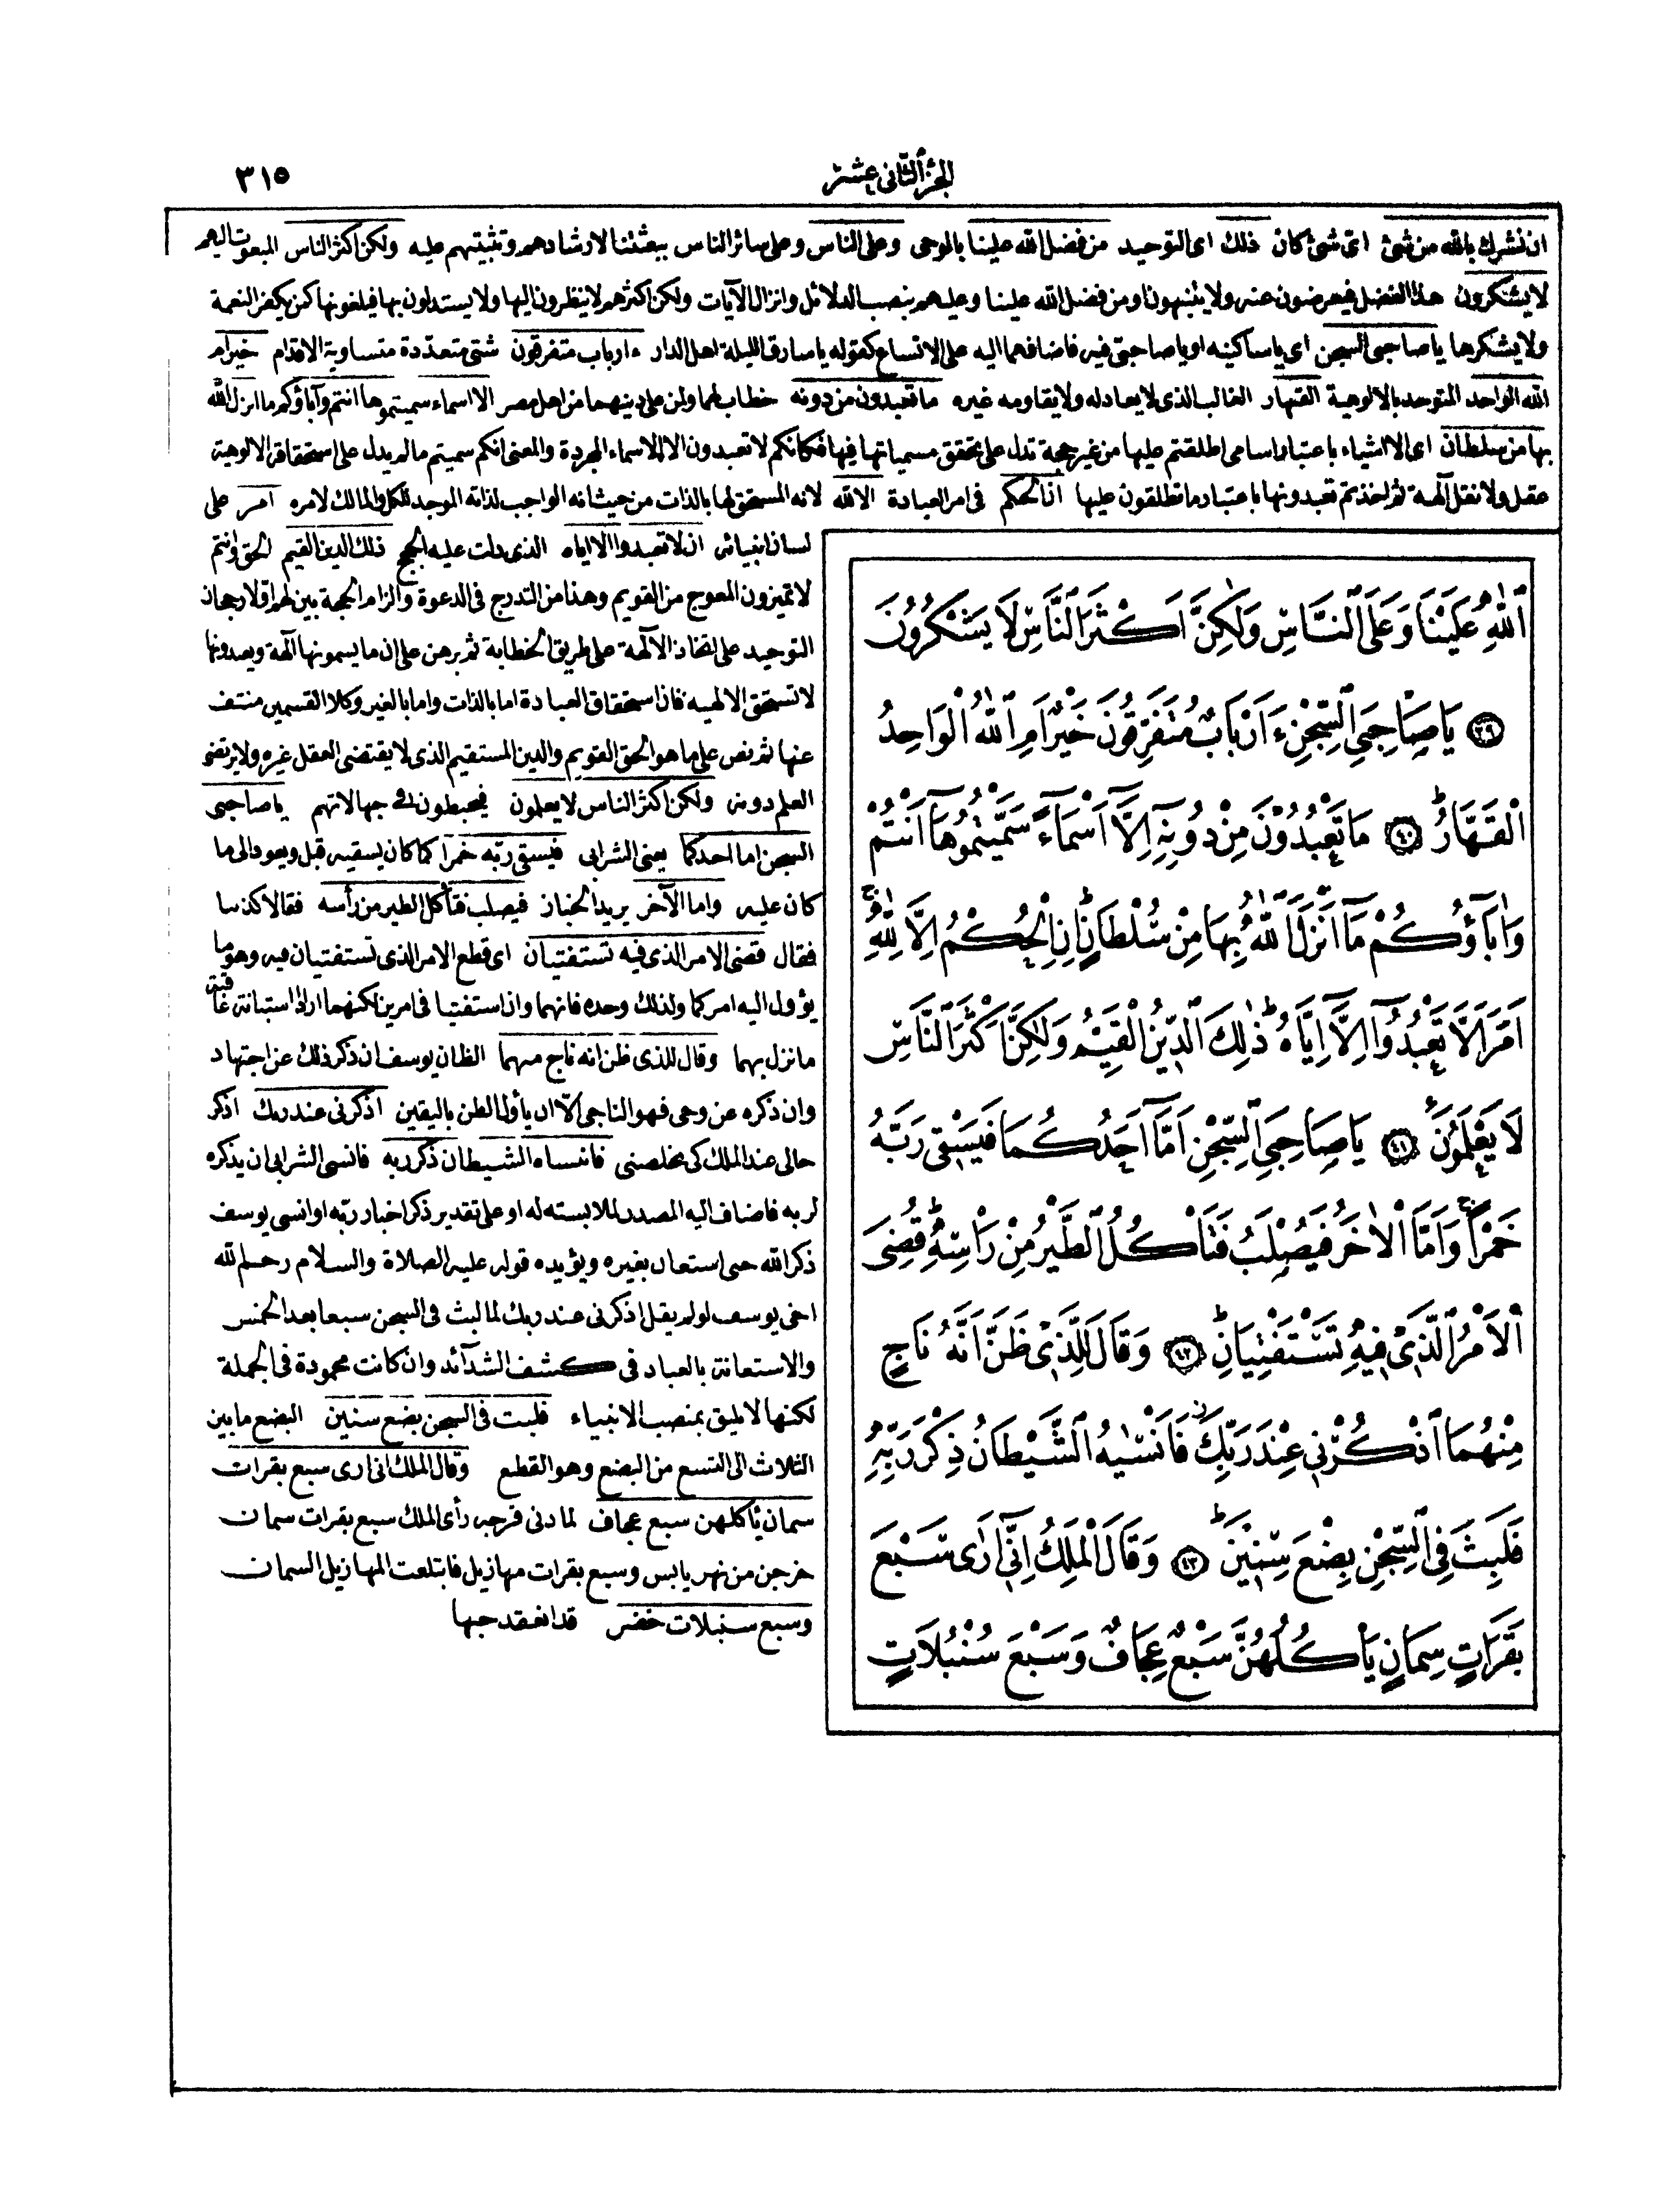 الجزء الثانى عشر
٣١٥
ان نشرك بالله من شئ اى شئ كان ذلك اى التوحيد من فضل الله علينا بالوحى وعلى الناس وعلى سائر الناس ببعثتنا لارشادهم وتثبيتهم عليه ولكن اكثر الناس المبعوث اليهم
لا يشكرون هذا الفضل فيعرضون عنه ولا يتنبهون او من فضل الله علينا وعليهم بنصب الدلائل وانزال الآيات ولكن اكثرهم لا ينظرون اليها ولا يستدلون بها فيلغونها كمن يكفر النعمة
ولا يشكرها يا صاحبى السجن اى يا ساكنيه او يا صاحبى فيه فاضافهما اليه على الاتساع كقوله يا سارق الليلة اهل الدار ءارباب متفرقون شتى متعددة متساوية الاقدام خير ام
الله الواحد المتوحد بالالوهية القهار الغالب الذى لا يعادله ولا يقاومه غيره ما تعبدون من دونه خطاب لهما ولمن على دينهما من اهل مصر الا اسماء سميتموها انتم وآباؤكم ما انزل الله
بها من سلطان اى الا اشياء باعتبار اسامى اطلقتم عليها من غير حجة تدل على تحقق مسمياتها فيها فكانكم لا تعبدون الا الاسماء المجردة والمعنى انكم سميتم ما لم يدل على استحقاقه الالوهية
عقل ولا نقل آلهة ثم اخذتم تعبدونها باعتبار ما تطلقون عليها ان الحكم فى امر العبادة الا لله لانه المستحق لها بالذات من حيث انه الواجب لذاته الموجد للكل والمالك لامره امر على
لسان انبيائه ان لا تعبدوا الا اياه الذى دلت عليه الحجج ذلك الدين القيم الحق وانتم
لا تميزون المعوج من القويم وهذا من التدرج فى الدعوة والزام الحجة بين لهم اولا رجحان
التوحيد على اتخاذ الآلهة على طريق الخطابة ثم برهن على ان ما يسمونها آلهة ويعبدونها
لا تستحق الالهية فان استحقاق العبادة اما بالذات واما بالغير وكلا القسمين منتف
عنها ثم نص على ما هو الحق القويم والدين المستقيم الذى لا يقتضى العقل غيره ولا يرتضى
العلم دونه ولكن اكثر الناس لا يعلمون فيخبطون فى جهالاتهم يا صاحبى
السجن اما احدكما يعنى الشرابى فيسقى ربه خمرا كما كان يسقيه قبل ويعود الى ما
كان عليه واما الآخر يريد الخباز فيصلب فتأكل الطير من رأسه فقالا كذبنا
فقال قضى الامر الذى فيه تستفتيان اى قطع الامر الذى تستفتيان فيه وهو ما
يؤول اليه امركما ولذلك وحده فانهما وان استفتيا فى امرين لكنهما ارادا استبانة عاقبة
ما نزل بهما وقال للذى ظن انه ناج منهما الظان يوسف ان ذكر ذلك عن اجتهاد
وان ذكره عن وحى فهو الناجى الا ان يأول الظن باليقين اذكرنى عند ربك اذكر
حالى عند الملك كى يخلصنى فانساه الشيطان ذكر ربه فانسى الشرابى ان يذكره
لربه فاضاف اليه المصدر لملابسته له او على تقدير ذكر اخبار ربه او انسى يوسف
ذكر الله حتى استعان بغيره ويؤيده قوله عليه الصلاة والسلام رحم الله
اخى يوسف لو لم يقل اذكرنى عند ربك لما لبث فى السجن سبعا بعد الخمس
والاستعانة بالعباد فى كشف الشدآئد وان كانت محمودة فى الجملة
لكنها لا يليق بمنصب الانبياء فلبث فى السجن بضع سنين البضع ما بين
الثلاث الى التسع من البضع وهو القطع وقال الملك انى ارى سبع بقرات
سمان يأكلهن سبع عجاف لما دنى فرجه رأى الملك سبع بقرات سمان
خرجن من نهر يابس وسبع بقرات مهازيل فابتلعت المهازيل السمان
وسبع سنبلات خضر قد انعقد حبها
اَللّٰهِ عَلَيْنَا وَعَلَى النَّاسِ وَلٰكِنَّ اَكْثَرَ النَّاسِ لَا يَشْكُرُونَ
﴿٣٩﴾ يَا صَاحِبَىِ السِّجْنِ ءَاَرْبَابٌ مُتَفَرِّقُونَ خَيْرٌ اَمِ اللّٰهُ الْوَاحِدُ
الْقَهَّارُ ﴿٤٠﴾ مَا تَعْبُدُونَ مِنْ دُونِهِٓ اِلَّٓا اَسْمَٓاءً سَمَّيْتُمُوهَٓا اَنْتُمْ
وَاٰبَٓاؤُكُمْ مَٓا اَنْزَلَ اللّٰهُ بِهَا مِنْ سُلْطَانٍ اِنِ الْحُكْمُ اِلَّا لِلّٰهِ
اَمَرَ اَلَّا تَعْبُدُٓوا اِلَّٓا اِيَّاهُ ذٰلِكَ الدِّينُ الْقَيِّمُ وَلٰكِنَّ اَكْثَرَ النَّاسِ
لَا يَعْلَمُونَ ﴿٤١﴾ يَا صَاحِبَىِ السِّجْنِ اَمَّٓا اَحَدُكُمَا فَيَسْقٖى رَبَّهُ
خَمْرًا وَاَمَّا الْاٰخَرُ فَيُصْلَبُ فَتَاْكُلُ الطَّيْرُ مِنْ رَاْسِهٖ قُضِىَ
الْاَمْرُ الَّذٖى فٖيهِ تَسْتَفْتِيَانِ ﴿٤٢﴾ وَقَالَ لِلَّذٖى ظَنَّ اَنَّهُ نَاجٍ
مِنْهُمَا اذْكُرْنٖى عِنْدَ رَبِّكَ فَاَنْسٰيهُ الشَّيْطَانُ ذِكْرَ رَبِّهٖ
فَلَبِثَ فِى السِّجْنِ بِضْعَ سِنٖينَ ﴿٤٣﴾ وَقَالَ الْمَلِكُ اِنّٖٓى اَرٰى سَبْعَ
بَقَرَاتٍ سِمَانٍ يَاْكُلُهُنَّ سَبْعٌ عِجَافٌ وَسَبْعَ سُنْبُلَاتٍ